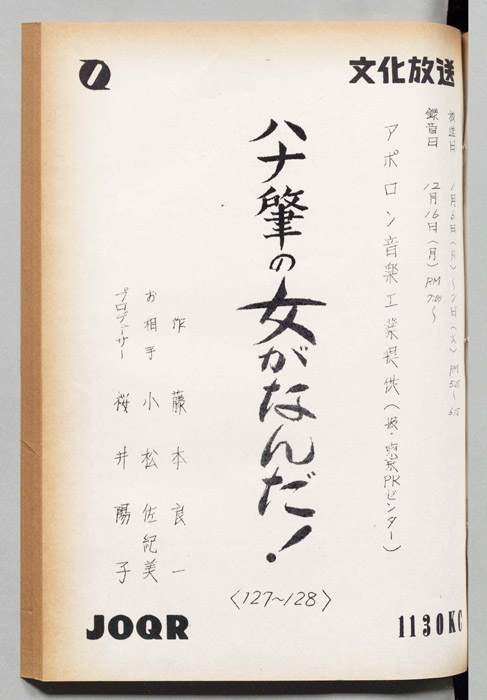 文化放送
放送日 1月6日(月)～7日(火) PM 5:05～5:15
録音日 12月16日(月) PM 7:00～
アポロン音楽工業提供(扱・東京PRセンター)
ハナ肇の女がなんだ!
〈127～128〉
作 藤本良一
お相手 小松佐紀美
プロデューサー 桜井陽子
JOQR
1130KC